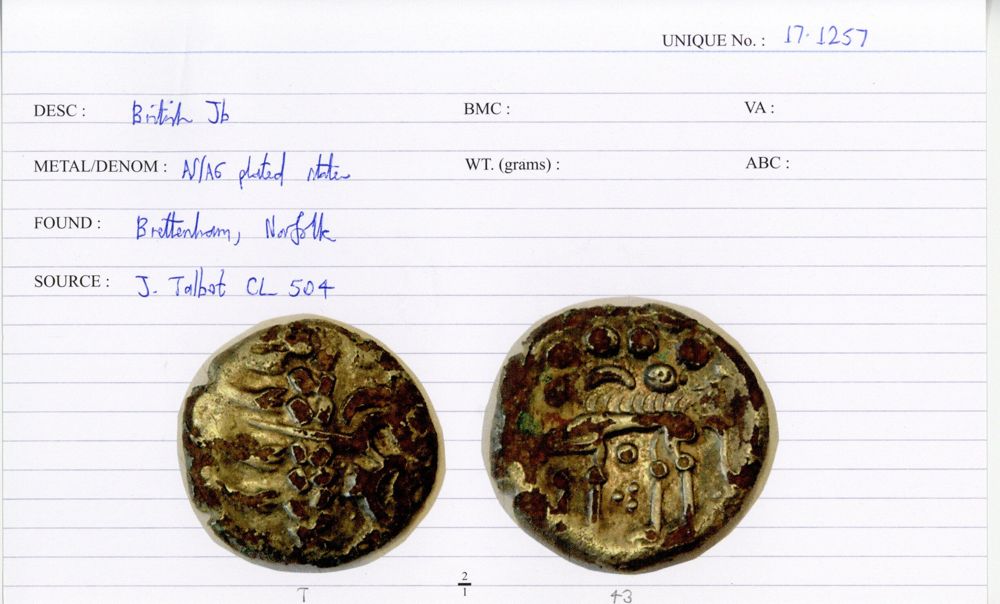 UNIQUE No. : 17.1257
DESC : British Jb BMC : VA :
METAL/DENOM : AV/AG plated stater WT. (grams) : ABC :
FOUND : Brettenham, Norfolk
SOURCE : J. Talbot CL 504
2/1
T 43